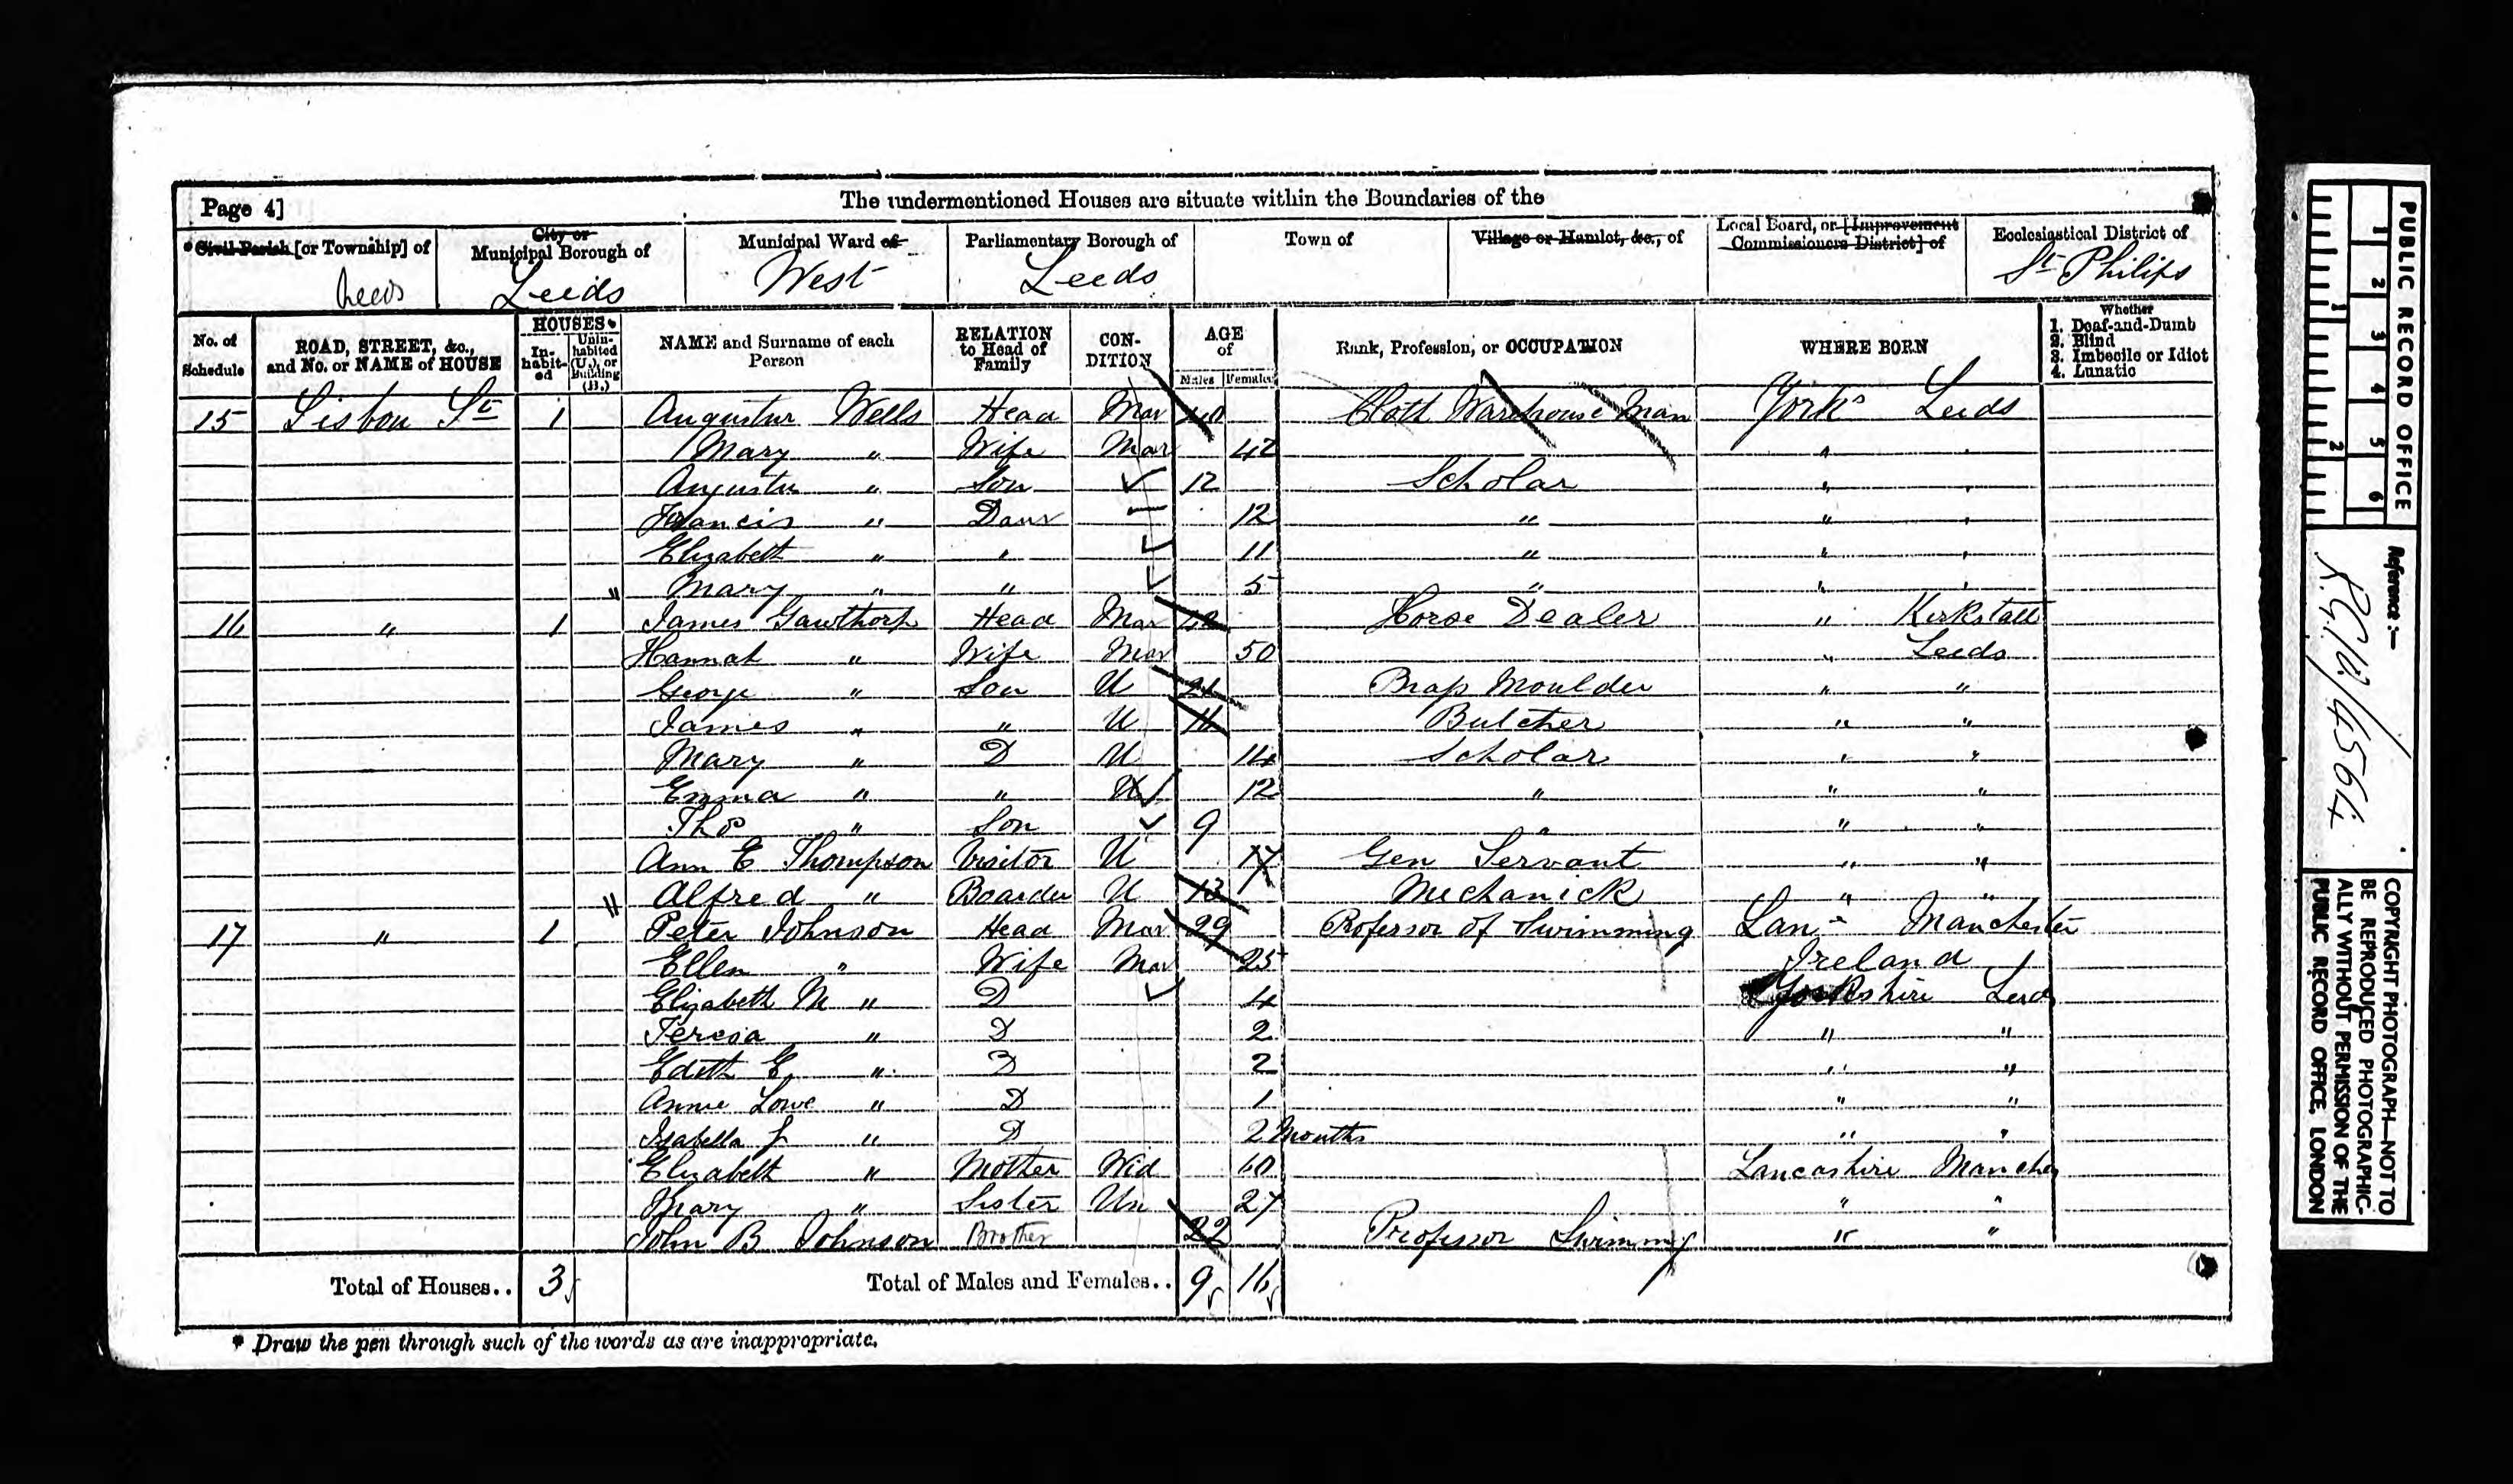 Page 4] The undermentioned Houses are situate within the Boundaries of the
* Civil Parish [or Township] of City or Municipal Borough of Municipal Ward of Parliamentary Borough of Town of Village or Hamlet, &c., of Local Board, or [Improvement Commissioners District] of Ecclesiastical District of
Leeds Leeds West Leeds St Philips
No. of Schedule ROAD, STREET, &c., and No. or NAME of HOUSE HOUSES In-habit-ed Unin-habited (U.), or Building (B.) NAME and Surname of each Person RELATION to Head of Family CON-DITION AGE of Males Females Rank, Profession, or OCCUPATION WHERE BORN Whether 1. Deaf-and-Dumb 2. Blind 3. Imbecile or Idiot 4. Lunatic
15 Lisbon St 1 Augustus Wells Head Mar 40 Cloth Warehouse Man Yorks Leeds
Mary " Wife Mar 42 " "
Augustus " Son 12 Scholar " "
Francis " Daur 12 " " "
Elizabeth " " 11 " " "
Mary " " 5 " " "
16 " 1 James Gawthorp Head Mar Horse Dealer " Kirkstall
Hannah " Wife Mar 50 " Leeds
George " Son U 21 Brass Moulder " "
James " " U Butcher " "
Mary " D U 14 Scholar " "
Emma " " U 12 " " "
Thos " Son 9 " " "
Ann E Thompson Visitor U 17 Gen Servant " "
Alfred " Boarder U Mechanick " "
17 " 1 Peter Johnson Head Mar 29 Professor of Swimming Lan Manchester
Ellen " Wife Mar 25 Ireland
Elizabeth M " D 4 Yorkshire Leeds
Teresa " D 2 " "
Edith E " D 2 " "
Annie Lowe " D 1 " "
Isabella J " D 2 Months " "
Elizabeth " Mother Wid 60 Lancashire Manches
Mary " Sister Un 27 " "
John B Johnson Brother 22 Professor Swimming " "
Total of Houses.. 3 Total of Males and Females.. 9 16
* Draw the pen through such of the words as are inappropriate.
PUBLIC RECORD OFFICE
1 2 3 4 5 6
1 2
Reference :—
R.G. 10/4564
COPYRIGHT PHOTOGRAPH—NOT TO
BE REPRODUCED PHOTOGRAPHIC-
ALLY WITHOUT PERMISSION OF THE
PUBLIC RECORD OFFICE, LONDON